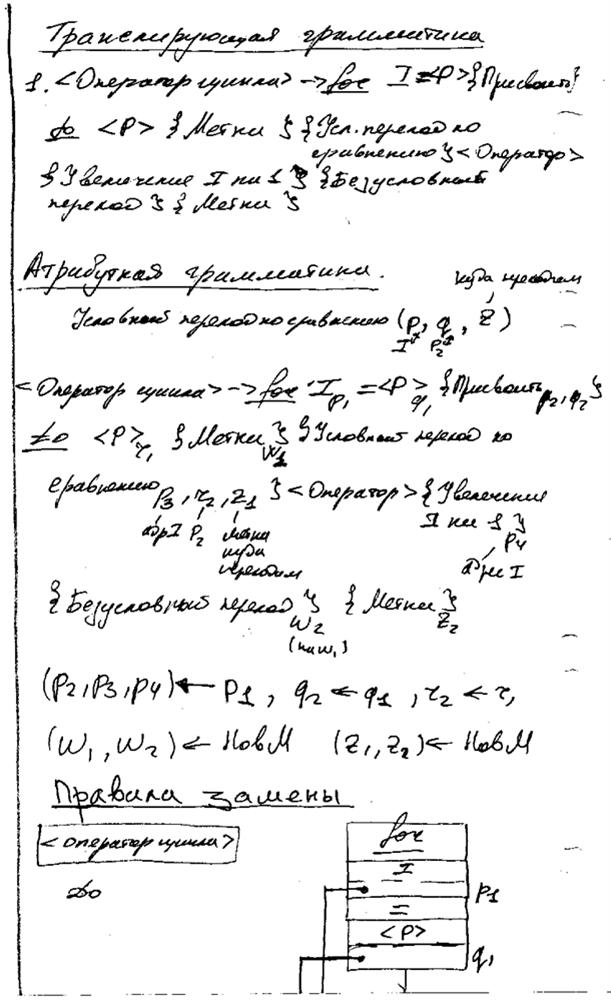 Транслирующая грамматика
1. <Оператор цикла> → for I = <P> {Присвоить}
do <P> {Метка} {Усл. переход по
сравнению} <Оператор>
{Увеличение I на 1} {Безусловный
переход} {Метка}
Атрибутная грамматика.
куда
Условный переход по сравнению (p, q, z)
I P2
<Оператор цикла> → for I p1 = <P> q1 {Присвоить p2, q2}
do <P> r1 {Метка w1} {Условный переход по
сравнению p3, r2, z1} <Оператор> {Увеличение
I на 1 p4}
адр I P2 метка
куда
переходим
адрес I
{Безусловный переход w2} {Метка z2}
(на w1)
(p2, p3, p4) ← p1, q2 ← q1, r2 ← r1
(w1, w2) ← НовМ (z1, z2) ← НовМ
Правила замены
<оператор цикла>
do
for
I
p1
=
<P>
q1